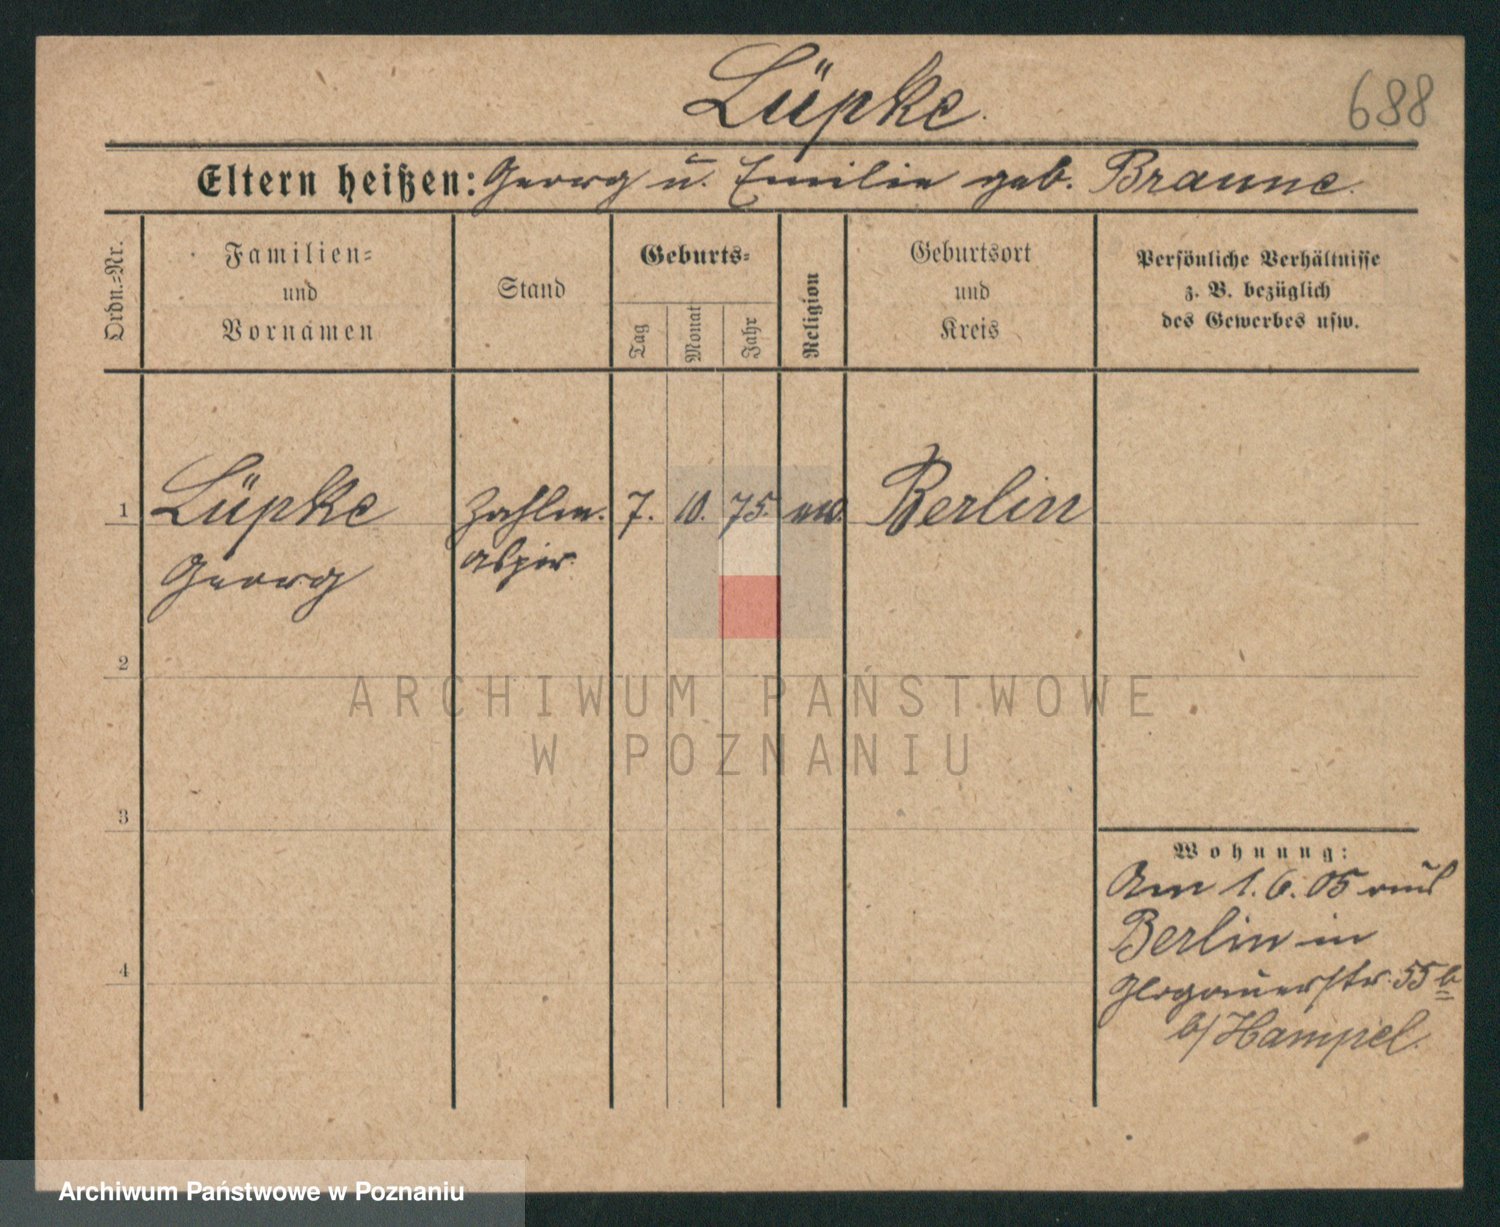 Lüpke.
688
Eltern heißen: Georg u. Emilie geb. Braune.
Ordn.-Nr.
Familien-
und
Vornamen
Stand
Geburts-
Tag
Monat
Jahr
Religion
Geburtsort
und
Kreis
Persönliche Verhältnisse
z. B. bezüglich
des Gewerbes usw.
1 Lüpke Zahlm. 7. 10. 75. ev. Berlin
Georg aspir.
2
3
4
Wohnung:
Am 1.6.05 aus
Berlin in
Glogauerstr. 55b
b/ Hampel.
ARCHIWUM PAŃSTWOWE
W POZNANIU
Archiwum Państwowe w Poznaniu